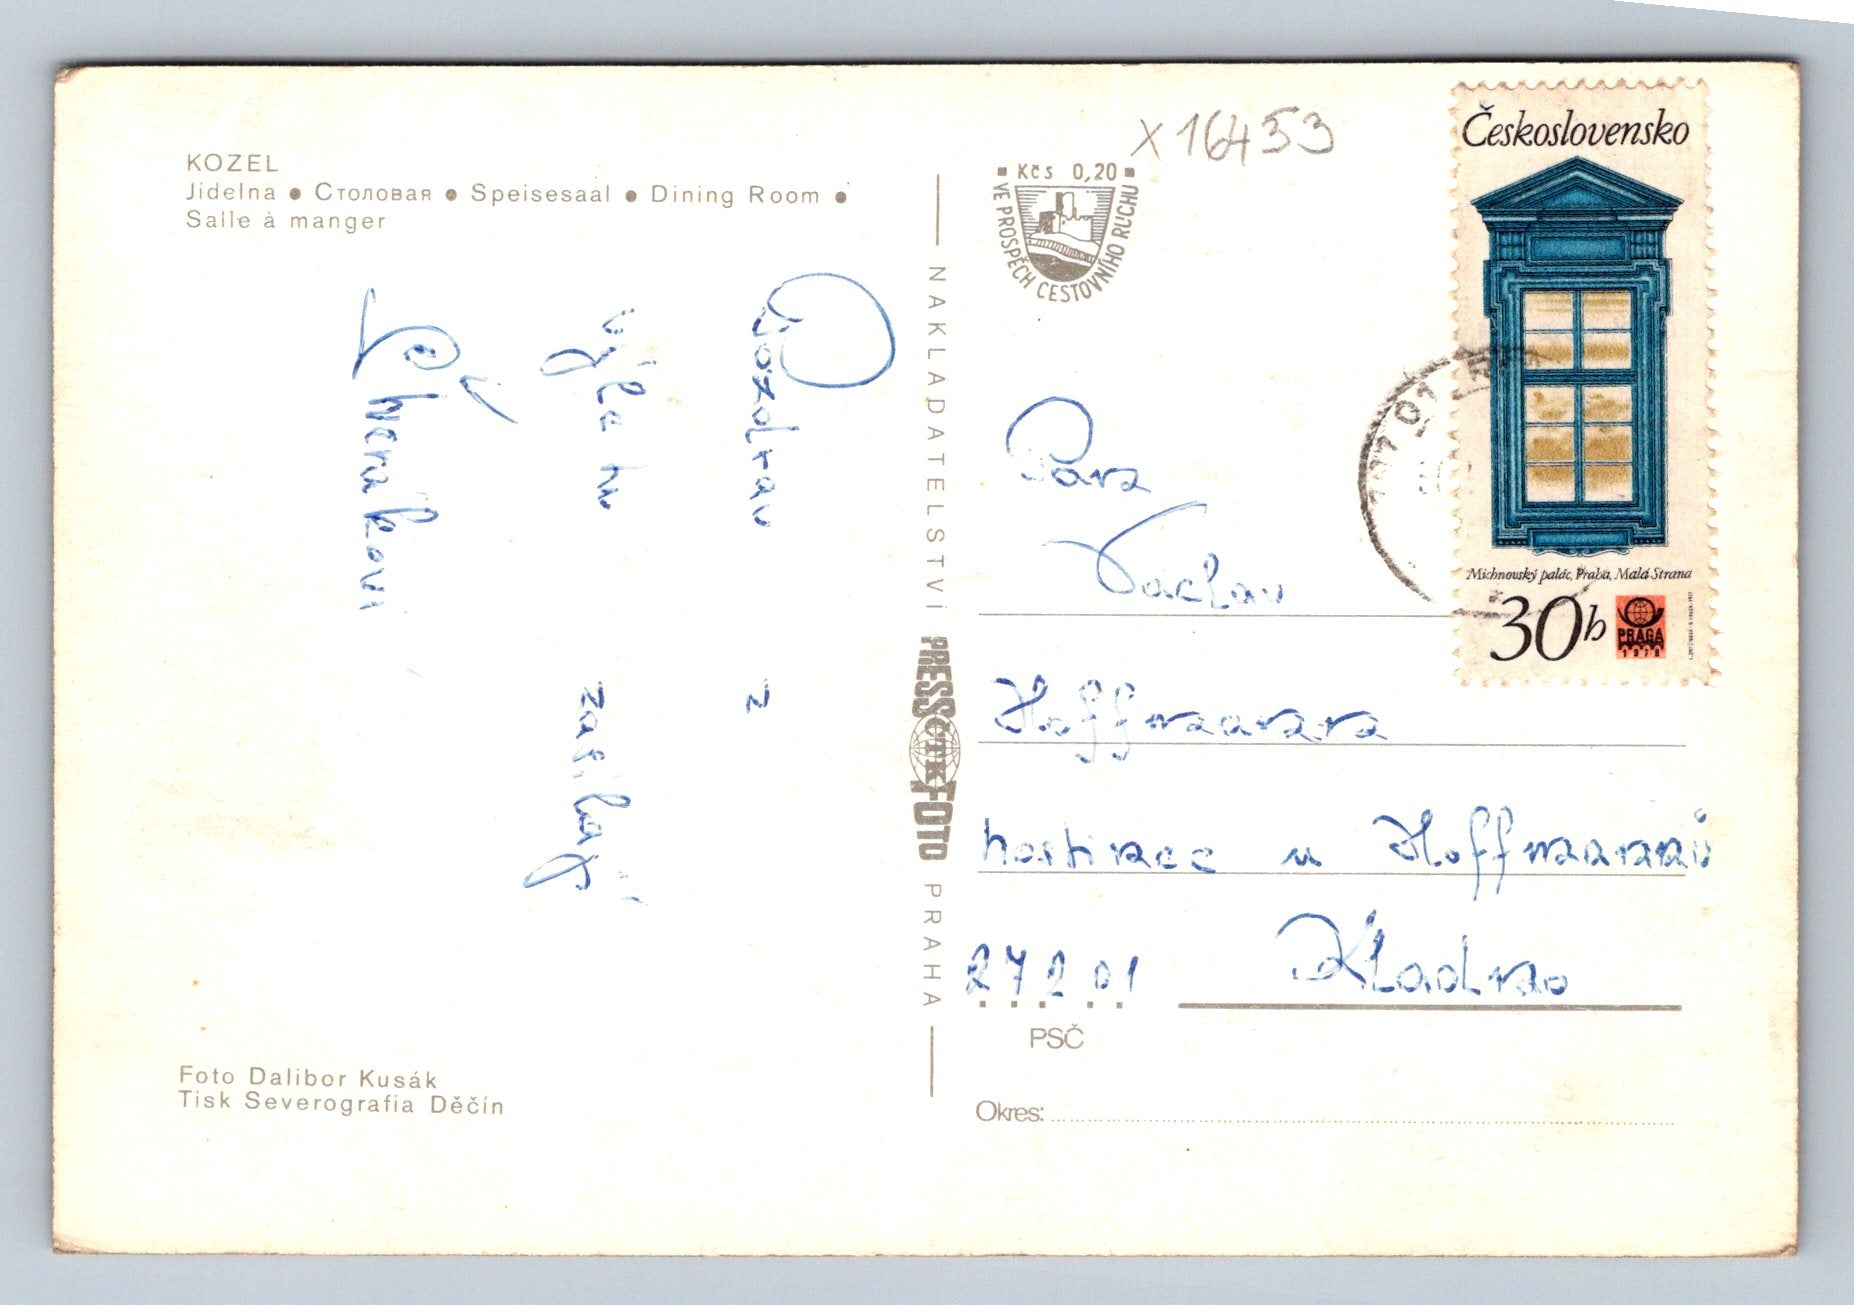 KOZEL
Jídelna ● Столовая ● Speisesaal ● Dining Room ●
Salle à manger
Pozdrav z
výletu zasílají
Lehnerákovi
Foto Dalibor Kusák
Tisk Severografia Děčín
NAKLADATELSTVÍ PRESSFOTO PRAHA
ČTK
X16453
Kčs 0,20
VE PROSPĚCH CESTOVNÍHO RUCHU
Československo
Michnovský palác, Praha, Malá Strana
30h
PRAGA
1978
Pan
Václav
Hoffmann
hostinec u Hoffmannů
272 01 Kladno
PSČ
Okres: